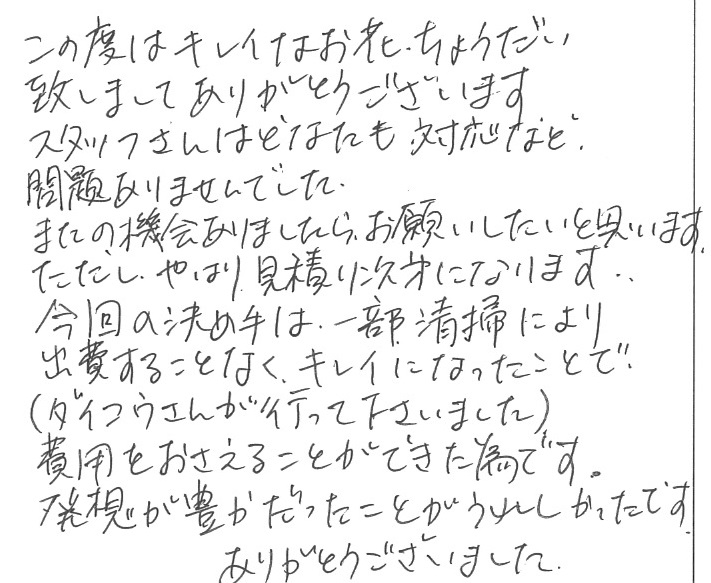 この度はキレイなお花、ちょうだい
致しましてありがとうございます
スタッフさんはどなたも、対応など、
問題ありませんでした。
またの機会ありましたら、お願いしたいと思います。
ただし、やはり、見積り次才になります、、
今回の決め手は、一部清掃により
出費することなく、キレイになったことで、
(ダイコウさんが行って下さいました)
費用をおさえることができた為です。
発想が豊かだったことがうれしかったです。
ありがとうございました。